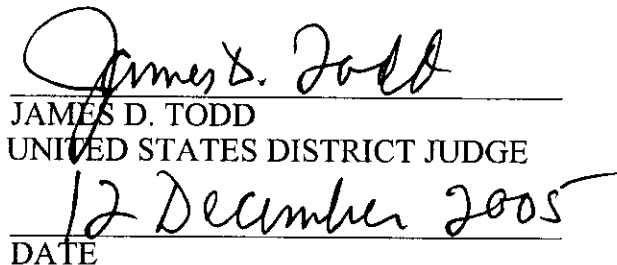 James D. Todd
JAMES D. TODD
UNITED STATES DISTRICT JUDGE
12 December 2005
DATE